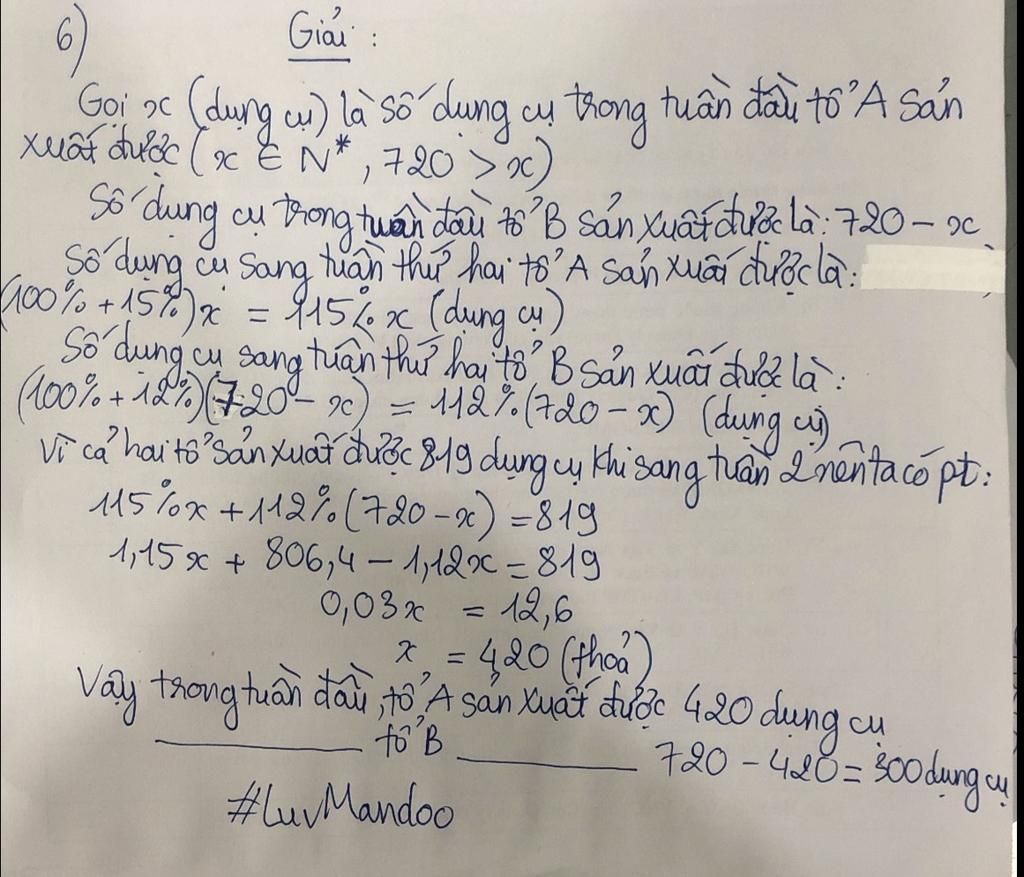 6) Giải :
Gọi x (dụng cụ) là số dụng cụ trong tuần đầu tổ A sản
xuất được ( x ∈ N* , 720 > x)
Số dụng cụ trong tuần đầu tổ B sản xuất được là: 720 - x
Số dụng cụ sang tuần thứ hai tổ A sản xuất được là:
(100% + 15%)x = 115% x (dụng cụ)
Số dụng cụ sang tuần thứ hai tổ B sản xuất được là:
(100% + 12%)(720 - x) = 112% (720 - x) (dụng cụ)
Vì cả hai tổ sản xuất được 819 dụng cụ khi sang tuần 2 nên ta có pt:
115%x + 112% (720 - x) = 819
1,15x + 806,4 - 1,12x = 819
0,03x = 12,6
x = 420 (thoả)
Vậy trong tuần đầu, tổ A sản xuất được 420 dụng cụ
tổ B 720 - 420 = 300 dụng cụ
#LuvMandoo